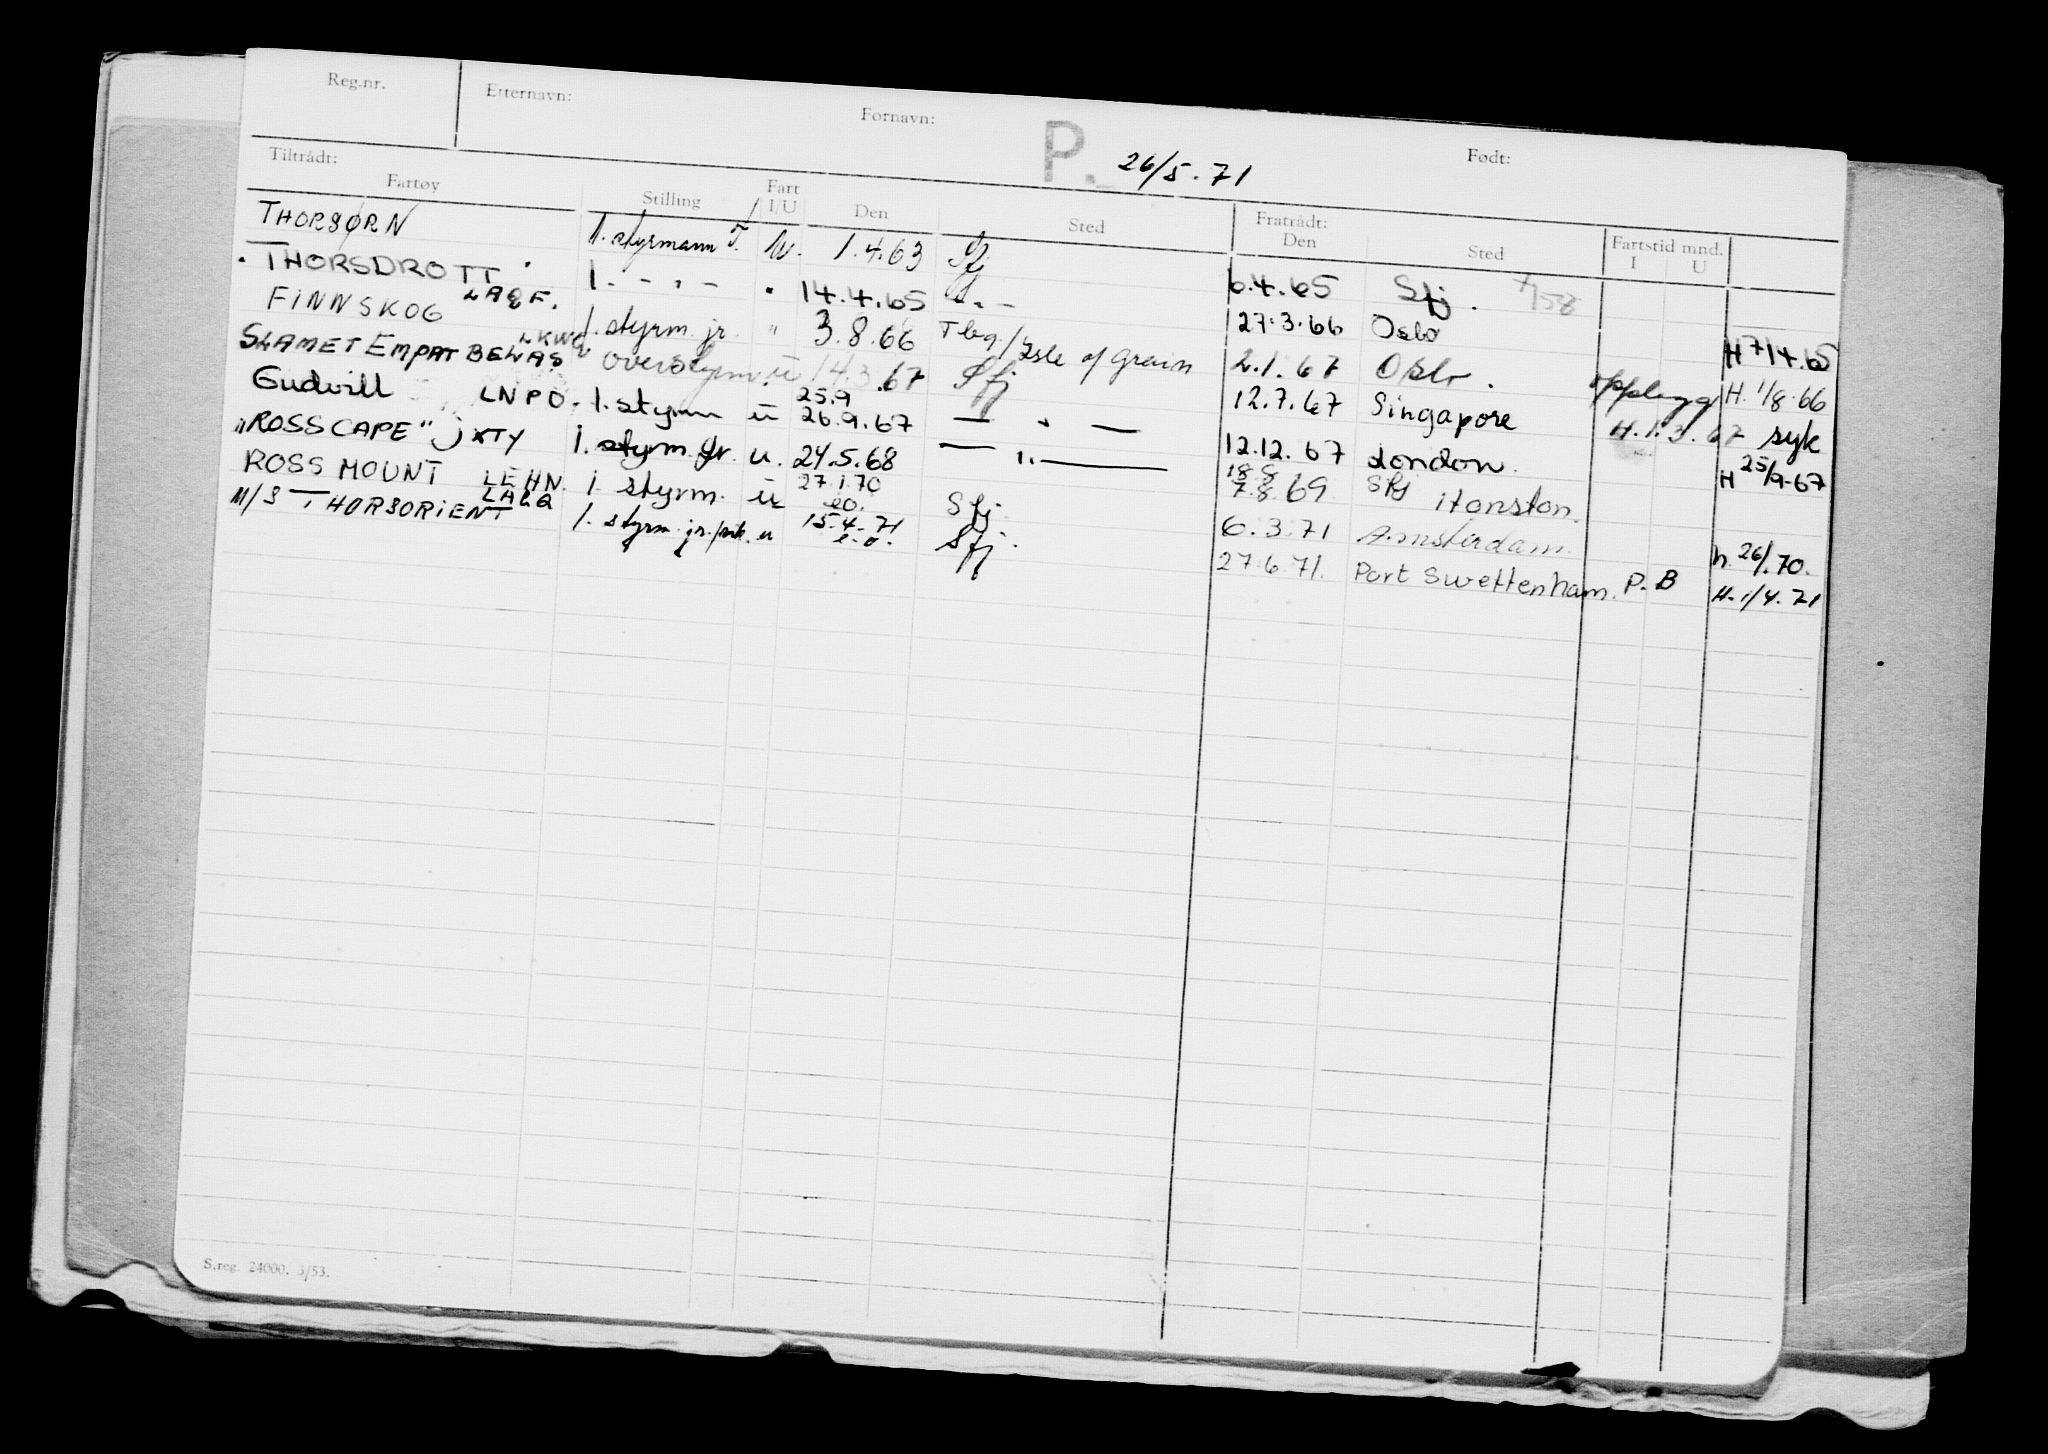 Reg.nr. Etternavn: Fornavn: P. 26/5.71 Født:
Tiltrådt: Fratrådt: Fartstid mnd.
Fartøy Stilling Fart I/U Den Sted Den Sted I U
THORSØRN 1. styrmann T. u. 1.4.63 Sfj 6.4.65 Sfj.
THORSDROTT LAQF. 1. - " - " 14.4.65 - " - 27.3.66 Oslo H 7/4.65
FINNSKOG LKWQ 1. styrm. jr. " 3.8.66 Tbg/Isle of Grain 2.1.67 Oslo. opplegg H. 1/8.66
SLAMET EMPAT BELAS overstyrm. u 14.3.67 Sfj 12.7.67 Singapore H. 1.3.67 syk
Gudvill LNPO. 1. styrm u 25.9 26.9.67 — " — 12.12.67 London. H 25/9-67
"ROSSCAPE" JXTY 1. styrm. jr. u. 24.5.68 — " — 18.8 7.8.69 Sfj Honston.
ROSS MOUNT LEHN. 1 styrm. u 27.1.70 eo. Sfj. 6.3.71 Amsterdam. h. 26/1.70.
M/S THORSORIENT LALQ 1. styrm. jr. u 15.4.71 e.o. Sfj. 27.6.71. Port Swettenham. P.B H. 1/4.71
S.reg. 24000. 3/53.